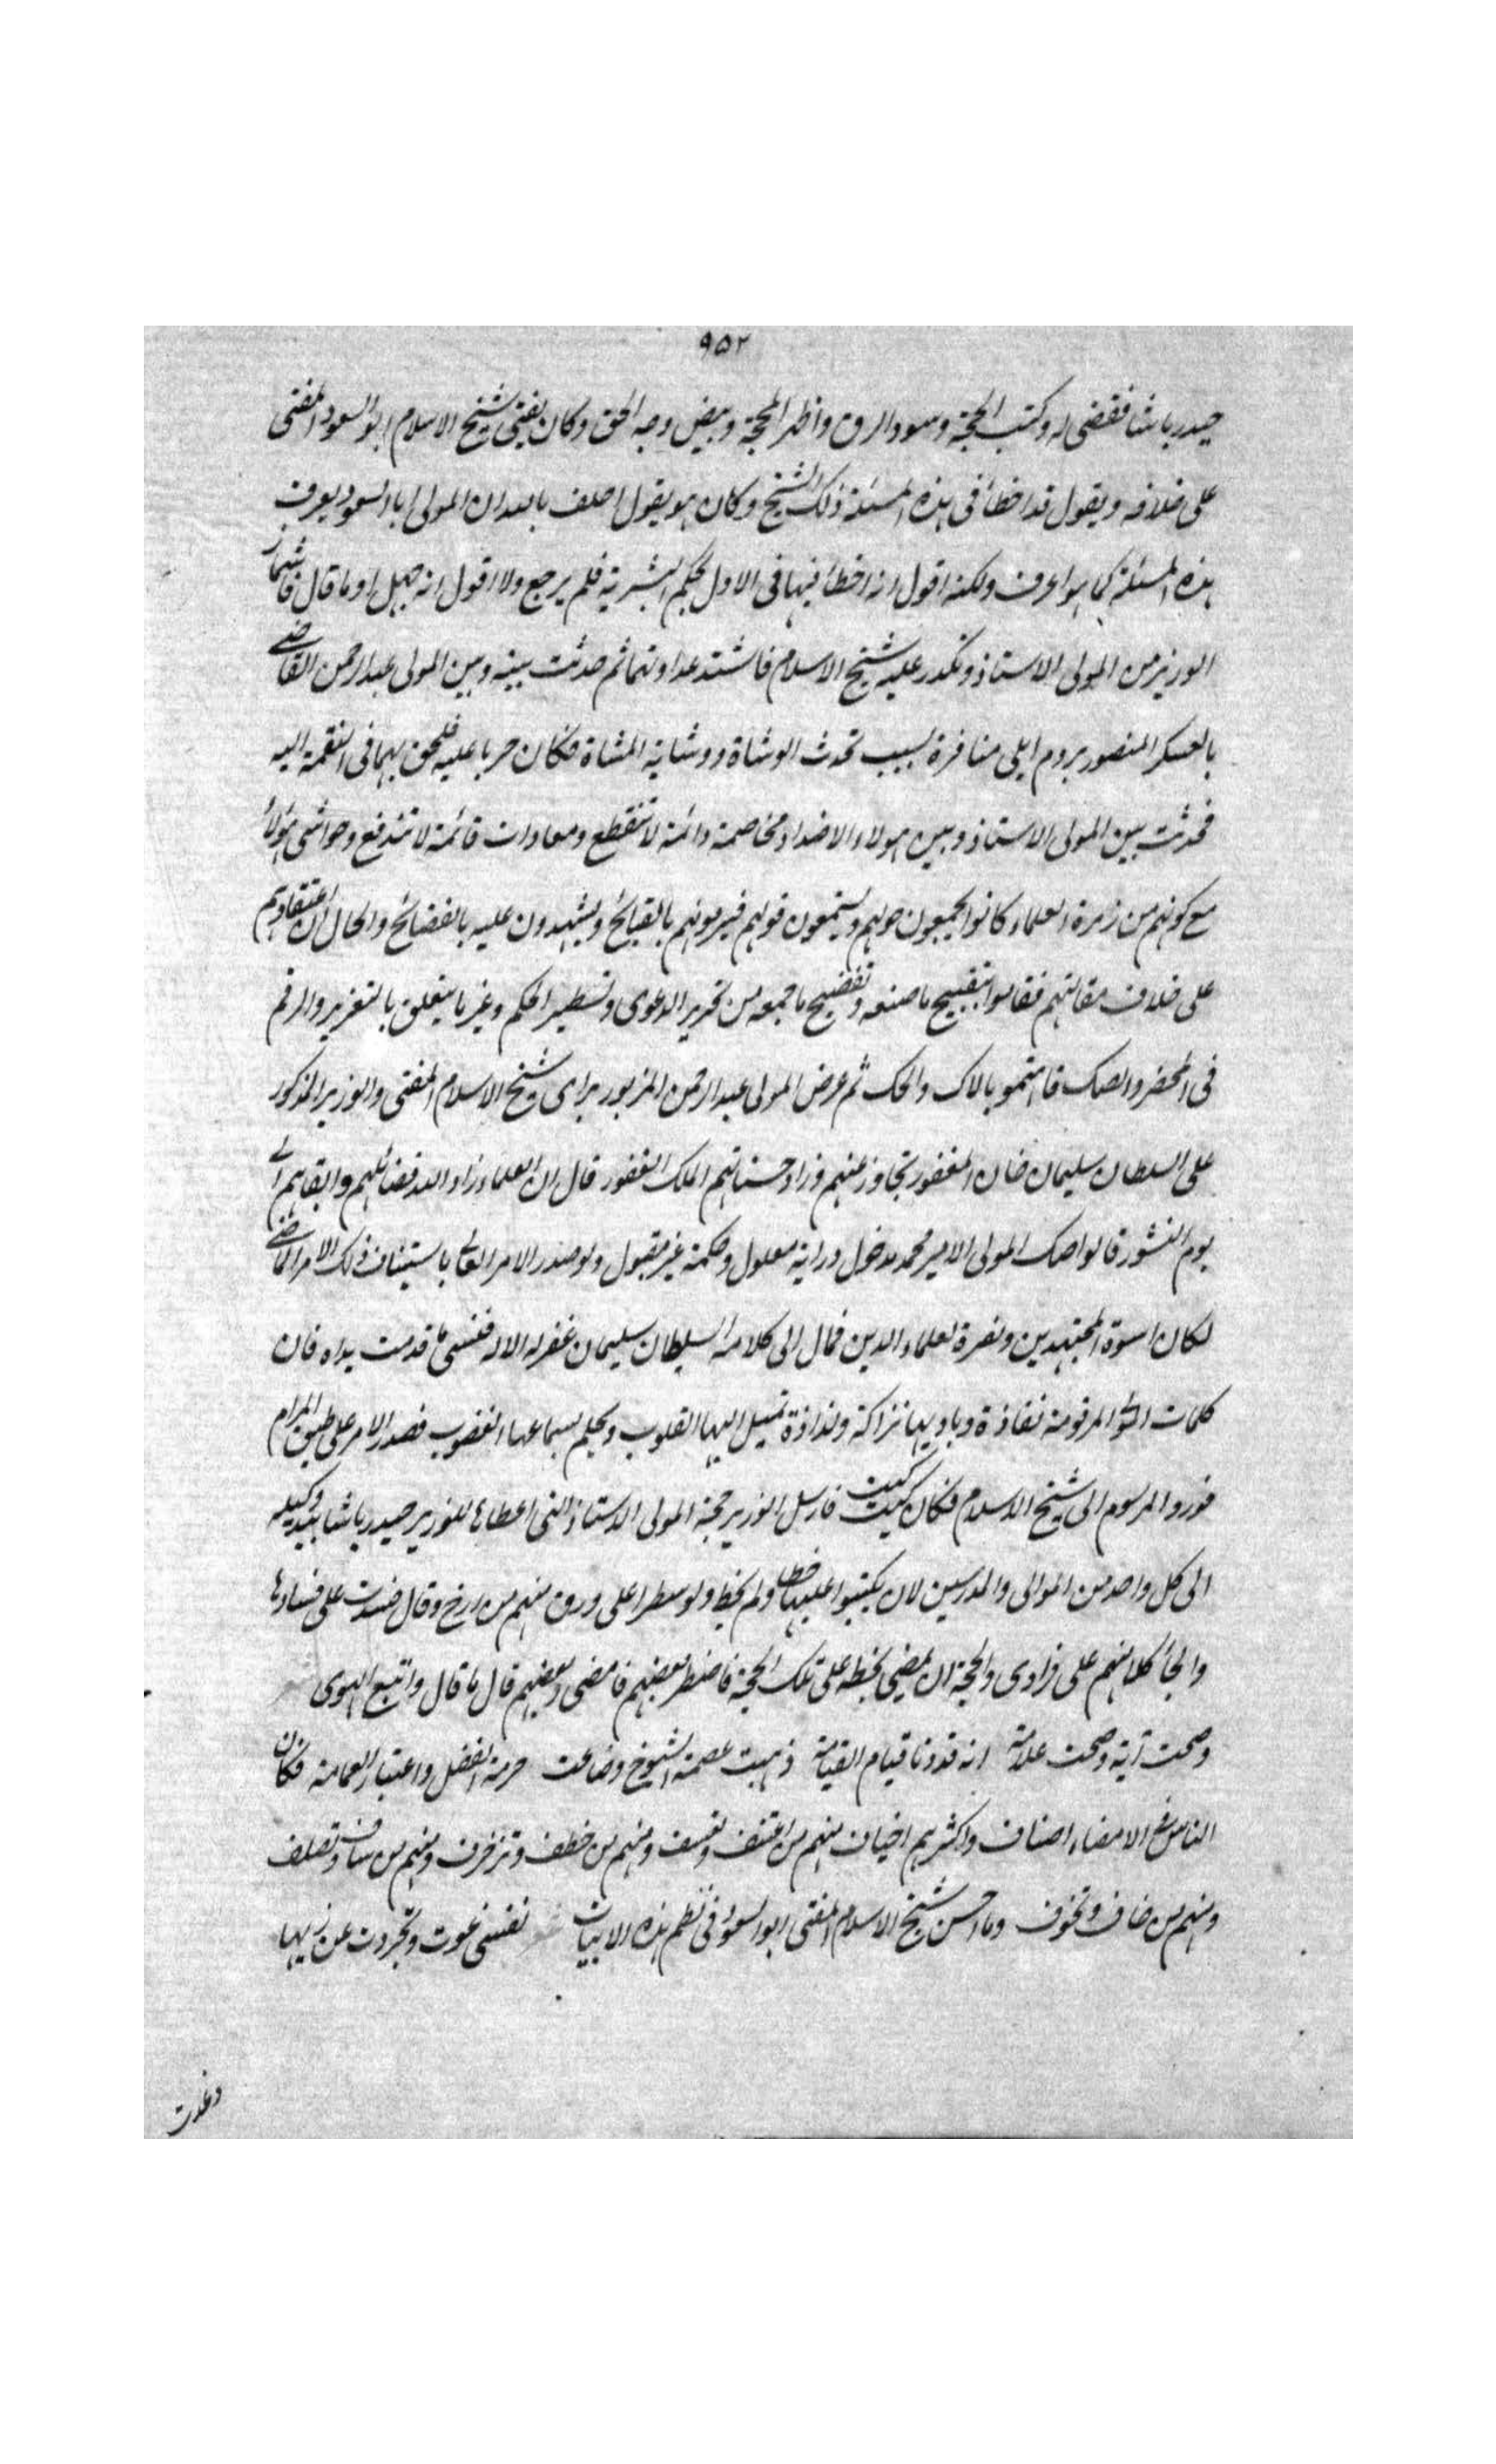 ٩٥٢
حيدر باشا فقضى له وكتب الحجة وسود الرق واظهر المحجة وبيض وجه الحق وكان يفتى شيخ الاسلام ابو السعود المفتى
على خلافه ويقول قد اخطأ فى هذه المسئلة ذلك الشيخ وكان هو يقول احلف بالله ان المولى ابا السعود يعرف
هذه المسئلة كما هو اعرف ولكنه اقول انه اخطأ فيها فى الاول بحكم البشرية فلم يرجع ولا اقول انه جهل او ما قال فاشمأز
الوزير من المولى الاستاذ وتكدر عليه شيخ الاسلام فاشتد عداوتهما ثم حدثت بينه وبين المولى عبد الرحمن القاضى
بالعسكر المنصور بروم ايلى منافرة بسبب تحدث الوشاة ووشاية المشاة فكان حربا عليه فلحق بهما فى النقمة اليه
فحدثت بين المولى الاستاذ وبين هولاء الاضداد مخاصمة دائمة لا تنقطع ومعادات قائمة لا تندفع وحواشى هؤلاء
مع كونهم من زمرة العلماء كانوا يجمعون حولهم ويستمعون قولهم فيرمونهم بالقبائح ويشهدون عليه بالفضائح والحال ان اعتقادهم
على خلاف مقالتهم فقاموا بتقبيح ما صنعه وتفضيح ما جمعه من تحرير الدعوى وتسطير الحكم وغير ما يتعلق بالتغرير والرقم
فى المحضر والصك فاهتموا بالاك والحك ثم عرض المولى عبد الرحمن المزبور براى شيخ الاسلام المفتى والوزير المذكور
على السلطان سليمان خان المغفور تجاوز عنهم وزاد حسناتهم الملك الغفور قال ان العلماء زاد الله فضائلهم وابقاهم الى
يوم النشور قالوا صك المولى الامير محمد مدخول ورايه معلول وحكمه غير مقبول ولو صدر الامر العالى باستيناف ذلك الامر الماضى
لكان اسوة المجتهدين ونصرة لعلماء الدين فمال الى كلامه السلطان سليمان غفر له الاله فنسى ما قدمت يداه فان
كلمات المرقومة نفاذة وباديها نزاكة ولذاذة تميل اليها القلوب ويحلم بسماعها الغضوب فصدر الامر على طبق المرام
فورد المرسوم الى شيخ الاسلام فكان كيت كيت فارسل الوزير حجة المولى الاستاذ التى اعطاها للوزير حيدر باشا بيد وكيله
الى كل واحد من الموالى والمدرسين لان يكتبوا عليها خطا ولم يخط ولو سطرا على ورق منهم من ارخ وقال فسدت على فسادها
والجأ كلا منهم على فرادى والحجة ان يمضى بخطه على تلك الحجة فاضطر بعضهم فامضى وبعضهم قال ما قال واتبع الهوى
وضحت آية وصحت علامة انه قد دنا قيام القيامة ذهبت عصمة الشيوخ وضاعت حرمة الفضل واعتبار العمامة فكان
الناس فى الامضاء اصناف واكثرهم اخياف منهم من اعتنف وتعسف ومنهم من خطف وتزخرف ومنهم من ساف وتصلف
ومنهم من خاف وتخوف وما احسن شيخ الاسلام المفتى ابو السعود فى نظم هذه الابيات نفسى غوت وتجردت عن زيها
وغدت